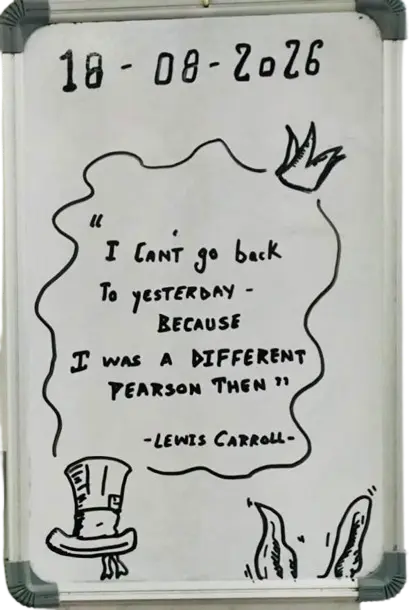 18-08-2026
"
I CAN'T go back
To yESTERDAY -
BECAUSE
I WAS A DIFFERENT
PEARSON THEN "
-LEWIS CARROLL-